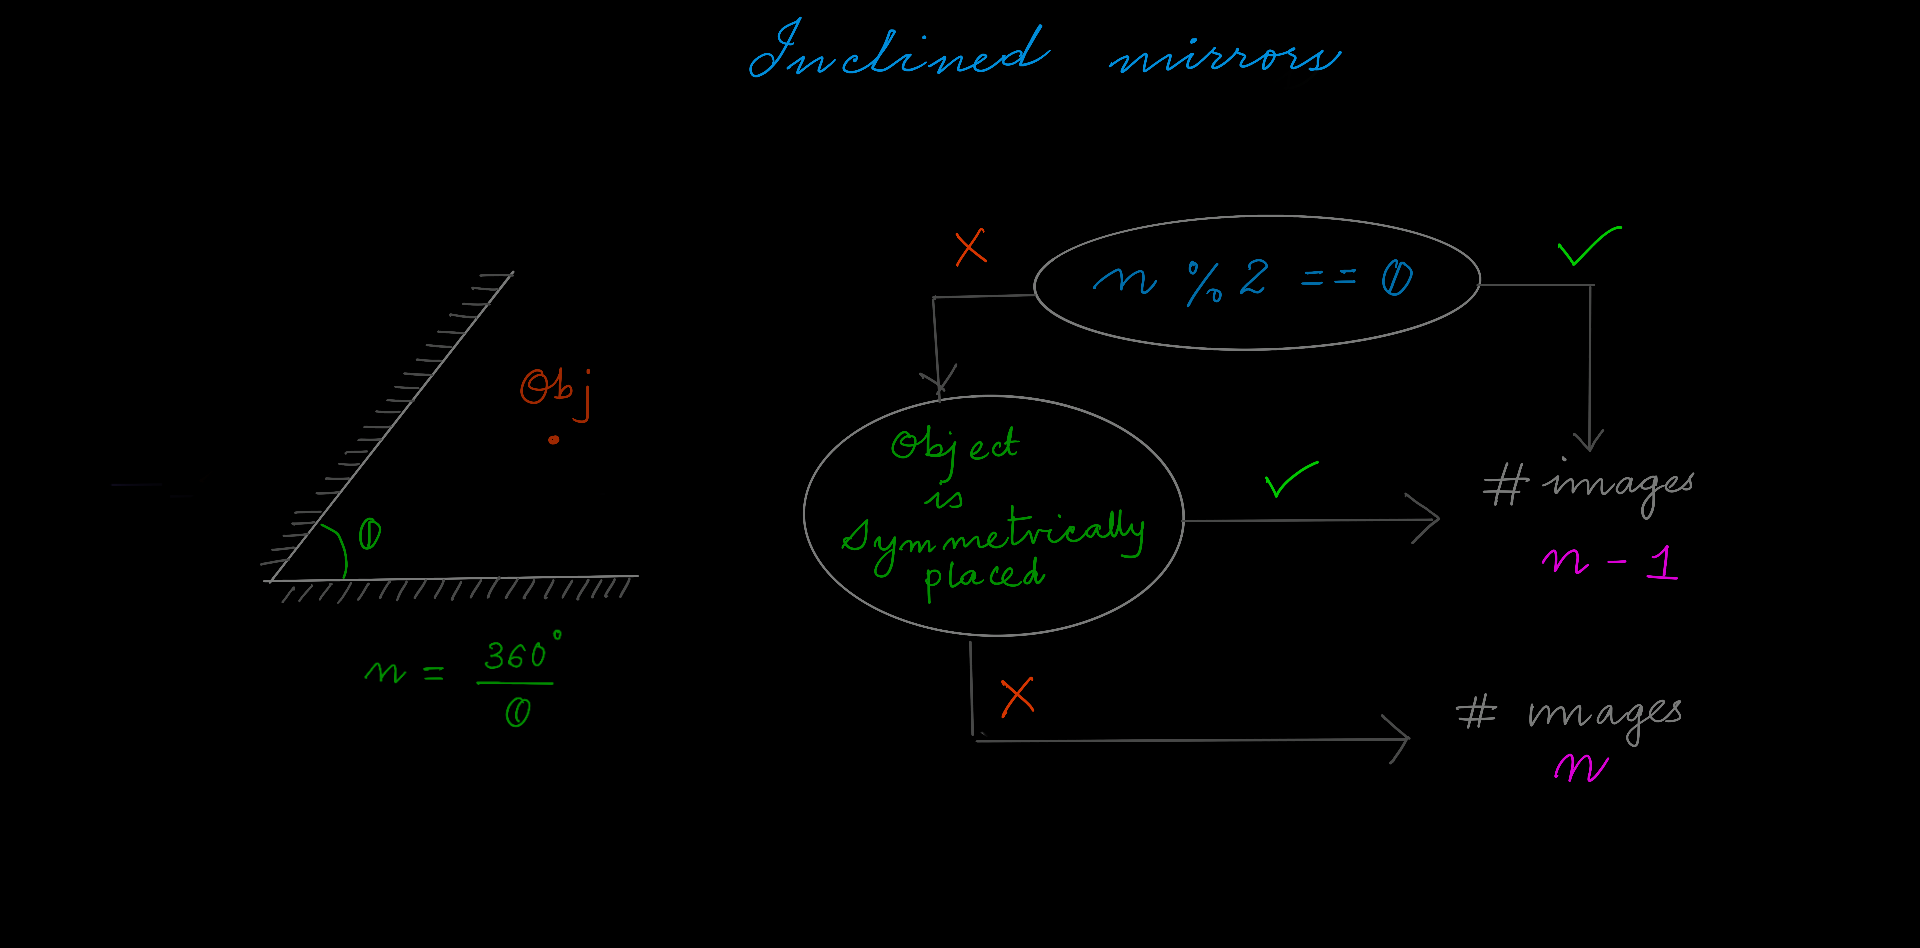 Inclined mirrors
n % 2 == 0
Obj
θ
n = 360° / θ
Object
is
Symmetrically
placed
# images
n - 1
# images
n